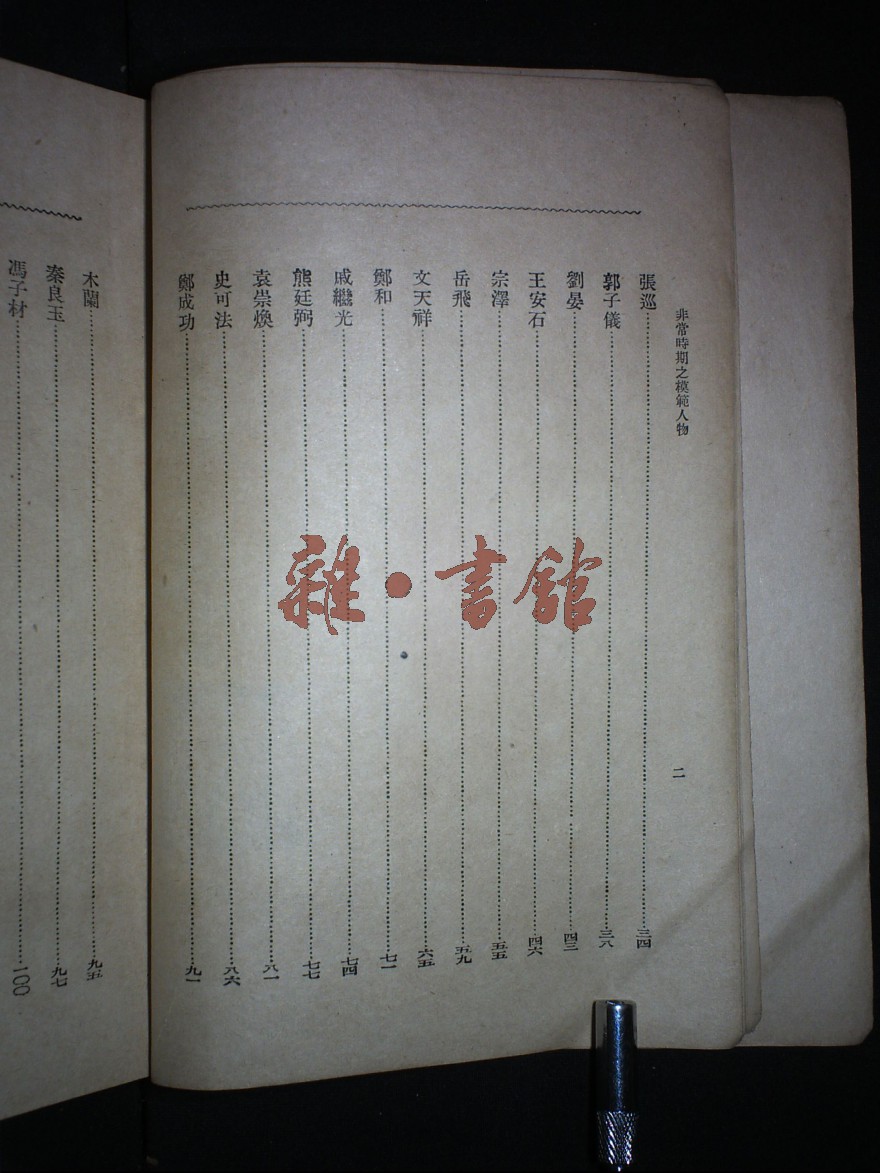 非常時期之模範人物
二
張巡……三四
郭子儀……三八
劉晏……四三
王安石……四六
宗澤……五五
岳飛……五九
文天祥……六五
鄭和……七一
戚繼光……七四
熊廷弼……七七
袁崇煥……八一
史可法……八六
鄭成功……九一
木蘭……九五
秦良玉……九七
馮子材……一〇〇
雜·書館